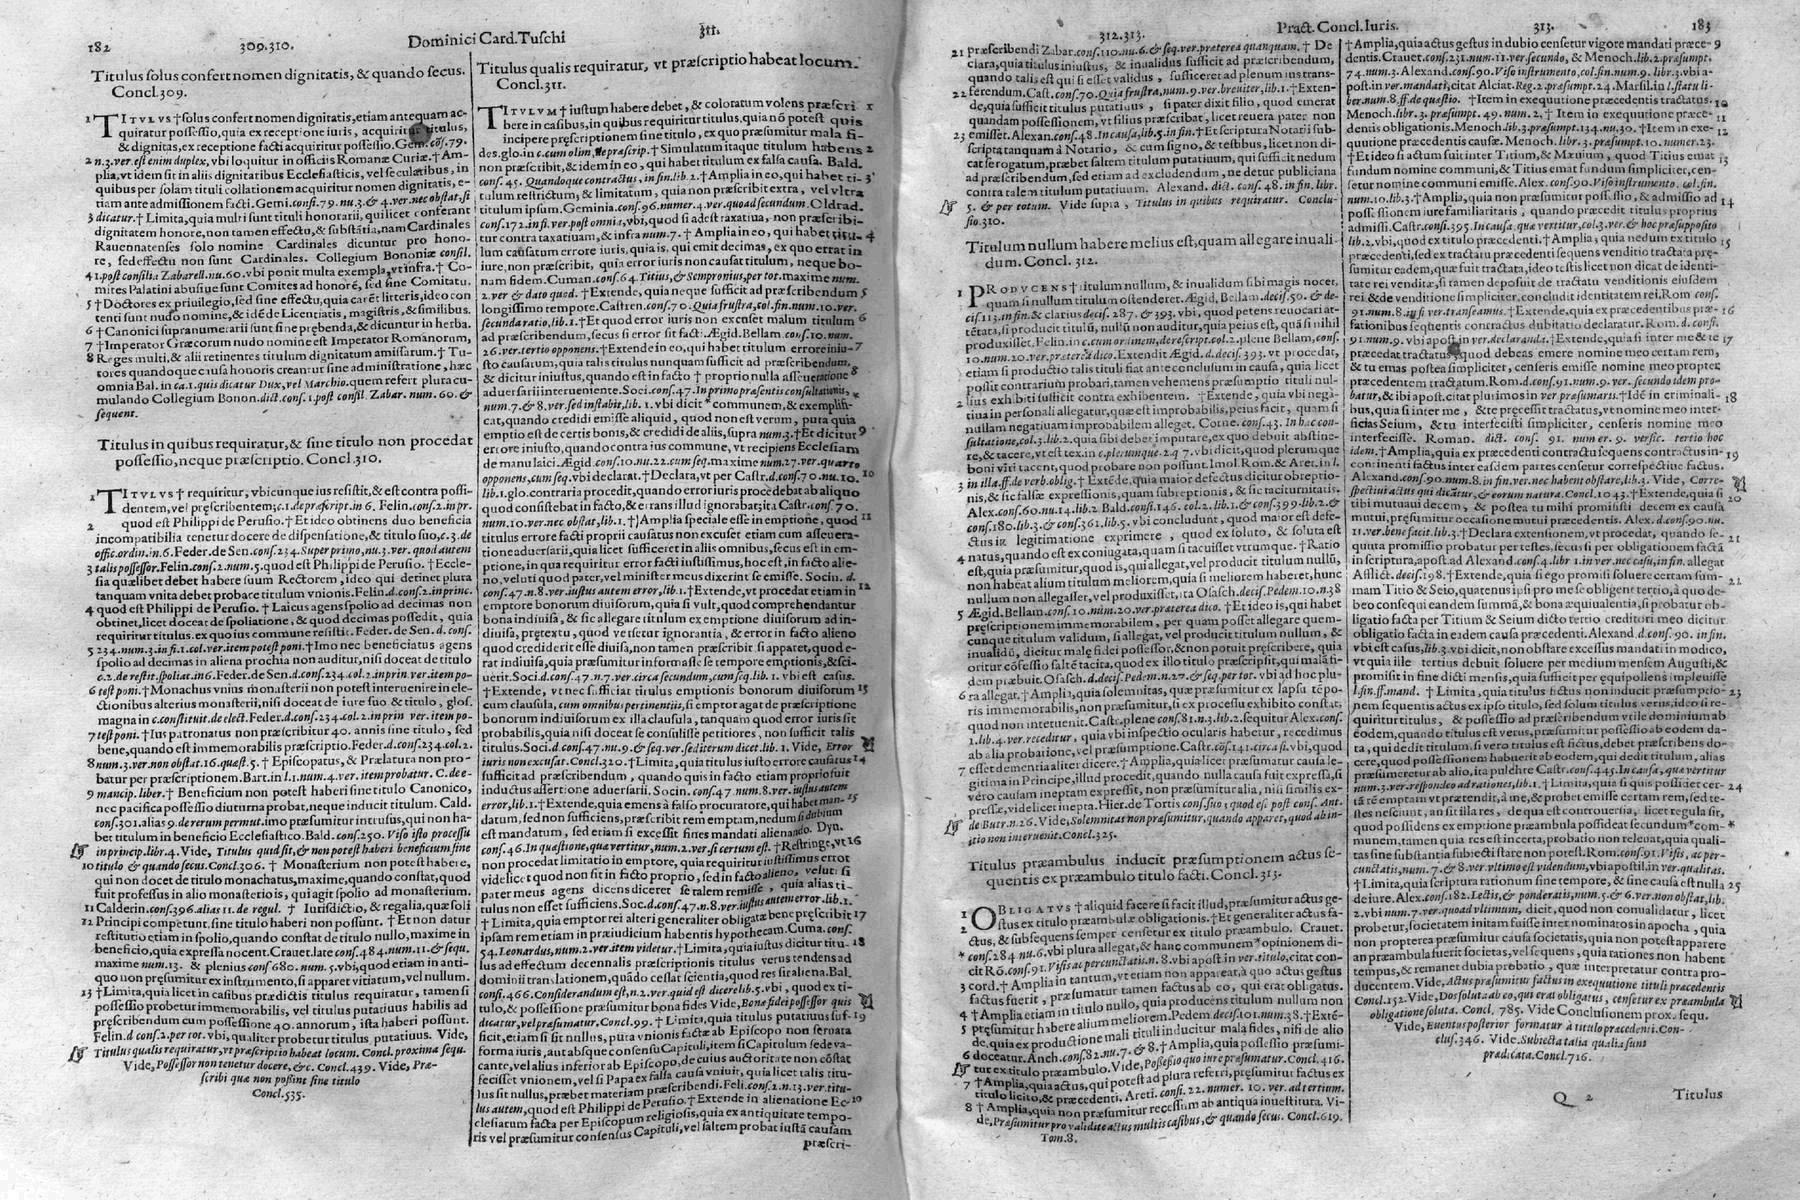 182 309.310. Dominici Card.Tuschi 311.
Titulus solus confert nomen dignitatis, & quando secus.
Concl.309.
1 TITVLVS † solus confert nomen dignitatis, etiam antequam ac-
quiratur possessio, quia ex receptione iuris, acquiritur titulus,
& dignitas, ex receptione facti acquiritur possessio. Gem. cōs. 79.
2 n.3.ver.est enim duplex, vbi loquitur in officiis Romanæ Curiæ. † Am-
plia, vt idem sit in aliis dignitatibus Ecclesiasticis, vel secularibus, in
quibus per solam tituli collationem acquiritur nomen dignitatis, e-
tiam ante admissionem facti. Gemi. cons. 79. nu. 3. & 4. ver. nec obstat, si
3 dicatur. † Limita, quia multi sunt tituli honorarii, qui licet conferant
dignitatem honore, non tamen effectu, & substātia, nam Cardinales
Rauennatenses solo nomine Cardinales dicuntur pro hono-
re, sed effectu non sunt Cardinales. Collegium Bononiæ consil.
4 1. post consilia Zabarell. nu. 60. vbi ponit multa exempla, vt infra. † Co-
mites Palatini abusiue sunt Comites ad honorē, sed sine Comitatu.
5 † Doctores ex priuilegio, sed sine effectu, quia carēt litteris, ideo con
tenti sunt nudo nomine, & idē de Licentiatis, magistris, & similibus.
6 † Canonici supranumerarii sunt sine prębenda, & dicuntur in herba.
7 † Imperator Græcorum nudo nomine est Imperator Romanorum,
8 Reges multi, & alii retinentes titulum dignitatum amissarum. † Tu-
tores quandoque causa honoris creantur sine administratione, hæc
omnia Bal. in ca. 1. quis dicatur Dux, vel Marchio. quem refert plura cu-
mulando Collegium Bonon. dict. cons. 1. post consil. Zabar. num. 60. &
sequent.
Titulus in quibus requiratur, & sine titulo non procedat
possessio, neque præscriptio. Concl. 310.
1 TITVLVS † requiritur, vbicunque ius resistit, & est contra possi-
dentem, vel pręscribentem; c. 1. de præscript. in 6. Felin. cons. 2. in pr.
2 quod est Philippi de Perusio. † Et ideo obtinens duo beneficia
incompatibilia tenetur docere de dispensatione, & titulo suo, c. 3. de
offic. ordin. in 6. Feder. de Sen. cons. 234. Super primo, nu. 3. ver. quod autem
3 talis possessor. Felin. cons. 2. num. 5. quod est Philippi de Perusio. † Eccle-
sia quælibet debet habere suum Rectorem, ideo qui detinet plura
tanquam vnita debet probare titulum vnionis. Felin. d. cons. 2. in princ.
4 quod est Philippi de Perusio. † Laicus agens spolio ad decimas non
obtinet, licet doceat de spoliatione, & quod decimas possedit, quia
requiritur titulus. ex quo ius commune resistit. Feder. de Sen. d. cons.
5 234. num. 3. in fi. 1. col. ver. item potest poni. † Imo nec beneficiatus agens
spolio ad decimas in aliena prochia non auditur, nisi doceat de titulo
c. 2. de restit. spoliat. in 6. Feder. de Sen. d. cons. 234. col. 2. in prin ver. item po-
6 test poni. † Monachus vnius monasterii non potest interuenire in ele-
ctionibus alterius monasterii, nisi doceat de iure suo & titulo, glos.
magna in c. constituit. de elect. Feder. d. cons. 234. col. 2. in prin ver. item po-
7 test poni. † Ius patronatus non præscribitur 40. annis sine titulo, sed
bene, quando est immemorabilis præscriptio. Feder. d. cons. 234. col. 2.
8 num. 3. ver. non obstat. 16. quæst. 5. † Episcopatus, & Prælatura non pro-
batur per præscriptionem. Bart. in l. 1. num. 4. ver. item probatur. C. de e-
9 mancip. liber. † Beneficium non potest haberi sine titulo Canonico,
nec pacifica possessio diuturna probat, neque inducit titulum. Cald.
cons. 301. alias 9. de rerum permut. imo præsumitur intrusus, qui non ha-
bet titulum in beneficio Ecclesiastico. Bald. cons. 250. Viso isto processu
in princip. libr. 4. Vide, Titulus quid sit, & non potest haberi beneficium sine
10 titulo & quando secus. Concl. 306. † Monasterium non potest habere,
qui non docet de titulo monachatus, maxime, quando constat, quod
fuit professus in alio monasterio, qui agit spolio ad monasterium.
11 Calderin. cons. 396. alias 11. de regul. † Iurisdictio, & regalia, quæ soli
12 Principi competunt. sine titulo haberi non possunt. † Et non datur
restitutio etiam in spolio, quando constat de titulo nullo, maxime in
beneficio, quia expressa nocent. Crauet. late cons. 484. num. 11. & sequ.
maxime num. 13. & plenius cons. 680. num. 5. vbi, quod etiam in anti-
quo non præsumitur ex instrumento, si apparet vitiatum, vel nullum.
13 † Limita, quia licet in casibus prædictis titulus requiratur, tamen si
possessio probetur immemorabilis, vel titulus putatiuus habilis ad
pręscribendum cum possessione 40. annorum, ista haberi possunt.
Felin. d. cons. 2. per tot. vbi, qualiter probetur titulus putatiuus. Vide,
Titulus qualis requiratur, vt præscriptio habeat locum. Concl. proxima sequ.
Vide, Possessor non tenetur docere, &c. Concl. 439. Vide, Præ-
scribi quæ non possint sine titulo
Concl. 535.
Titulus qualis requiratur, vt præscriptio habeat locum.
Concl. 311.
TITVLVM † iustum habere debet, & coloratum volens præscri 1
bere in casibus, in quibus requiritur titulus, quia nō potest quis
incipere pręscriptionem sine titulo, ex quo præsumitur mala fi-
des. glo. in c. cum olim, de præscrip. † Simulatum itaque titulum habens 2
non præscribit, & idem in eo, qui habet titulum ex falsa causa. Bald.
cons. 45. Quandoque contractus, in fin. lib. 2. † Amplia in eo, qui habet ti- 3
tulum restrictum, & limitatum, quia non præscribit extra, vel vltra
titulum ipsum. Geminia. cons. 96. numer. 4. ver. quoad secundum. Oldrad.
cons. 172. in fi. ver. post omnia, vbi, quod si adest taxatiua, non præscribi-
tur contra taxatiuam, & infra num. 7. † Amplia in eo, qui habet titu- 4
lum causatum errore iuris, quia is, qui emit decimas, ex quo errat in
iure, non præscribit, quia error iuris non causat titulum, neque bo-
nam fidem. Cuman. cons. 64. Titius, & Sempronius, per tot. maxime num.
2. ver & dato quod. † Extende, quia neque sufficit ad præscribendum 5
longissimo tempore. Castren. cons. 70. Quia frustra, col. fin. num. 10. ver.
secunda ratio, lib. 1. † Et quod error iuris non excuset malum titulum 6
ad præscribendum, secus si error sit facti. Ægid. Bellam. cons. 10. num.
26. ver. tertio opponens. † Extende in eo, qui habet titulum errore iniu- 7
sto causatum, quia talis titulus nunquam sufficit ad præscribendum,
& dicitur iniustus, quando est in facto † proprio nulla asseueratione 8
aduersarii interueniente. Soci. cons. 47. In primo præsentis consultationis,
num. 7. & 8. ver. sed instabit, lib. 1. vbi dicit * communem, & exemplifi- *
cat, quando credidi emisse aliquid, quod non est verum, puta quia
emptio est de certis bonis, & credidi de aliis, supra num. 3. † Et dicitur 9
errore iniusto, quando contra ius commune, vt recipiens Ecclesiam
de manu laici. Ægid. cons. 10. nu. 22. cum seq. maxime num. 27. ver. quarto
opponens, cum seq. vbi declarat. † Declara, vt per Castr. d. cons. 70. nu. 10. 10
lib. 1. glo. contraria procedit, quando error iuris procedebat ab aliquo
quod consistebat in facto, & errans illud ignorabat; ita Castr. cons. 70.
num. 10. ver. nec obstat, lib. 1. † Amplia speciale esse in emptione, quod 11
titulus errore facti proprii causatus non excuset etiam cum asseuera-
tione aduersarii, quia licet sufficeret in aliis omnibus, secus est in em-
ptione, in qua requiritur error facti iustissimus, hoc est, in facto alie-
no, veluti quod pater, vel minister meus dixerint se emisse. Socin. d.
cons. 47. n. 8. ver. iustus autem error, lib. 1. † Extende, vt procedat etiam in 12
emptore bonorum diuisorum, quia si vult, quod comprehendantur
bona indiuisa, & sic allegare titulum ex emptione diuisorum ad in-
diuisa, prętextu, quod versetur ignorantia, & error in facto alieno
quod crediderit esse diuisa, non tamen præscribit si apparet, quod e-
rat indiuisa, quia præsumitur informasse se tempore emptionis, & sci-
uerit. Soci. d. cons. 47. n. 7. ver. circa secundum, cum seq. lib. 1. vbi est casus.
† Extende, vt nec sufficiat titulus emptionis bonorum diuisorum 13
cum clausula, cum omnibus pertinentiis, si emptor agat de præscriptione
bonorum indiuisorum ex illa clausula, tanquam quod error iuris sit
probabilis, quia nisi doceat se consilisse petitiores, non sufficit talis
titulus. Soci. d. cons. 47. nu. 9. & seq. ver. sed iterum dicet lib. 1. Vide, Error
iuris non excusat. Concl. 320. † Limita, quia titulus iusto errore causatus 14
sufficit ad præscribendum, quando quis in facto etiam proprio fuit
inductus assertione aduersarii. Socin. cons. 47 num. 8. ver. iustus autem
error, lib. 1. † Extende, quia emens à falso procuratore, qui habet man- 15
datum, sed non sufficiens, præscribit rem emptam, nedum si dubium
est mandatum, sed etiam si excessit fines mandati alienando. Dyn.
cons. 46. In quæstione, quæ vertitur, num. 2. ver. si certum est. † Restringe, vt 16
non procedat limitatio in emptore, quia requiritur iustissimus error
videlicet quod non sit in facto proprio, sed in facto alieno, veluti si
pater meus agens dicens diceret se talem remisse, quia alias ti-
tulus non esset sufficiens. Soc. d. cons. 47. n. 8. ver. iustus autem error. lib. 1.
† Limita, quia emptor rei alteri generaliter obligatæ bene præscribit 17
ipsam rem etiam in præiudicium habentis hypothecam. Cuma. cons.
54. Leonardus, num. 2. ver. item videtur. † Limita, quia iustus dicitur titu- 18
lus ad effectum decennalis præscriptionis titulus verus tendens ad
dominii translationem, quādo cessat scientia, quod res sit aliena. Bal.
cons. 466. Considerandum est, n. 2. ver. quid est dicere lib. 5. vbi, quod ex ti-
tulo, & possessione præsumitur bona fides Vide, Bonæ fidei possessor quis
dicatur, vel præsumatur. Concl. 99. † Limita, quia titulus putatiuus suf- 19
ficit, etiam si sit nullus, puta vnionis factæ ab Episcopo non seruata
forma iuris, aut absque consensu Capituli, item si Capitulum sede va-
cante, vel alius inferior ab Episcopo, de cuius auctoritate non cōstat
fecisset vnionem, vel si Papa ex falsa causa vniuit, quia licet talis titu-
lus sit nullus, præbet materiam præscribendi. Feli. cons. 2. n. 13. ver. titu-
lus autem, quod est Philippi de Perusio. † Extende in alienatione Ec- 20
clesiarum facta per Episcopum religiosis, quia ex antiquitate tempo-
ris vel præsumitur consensus Capituli, vel saltem probat iustā causam
præscri-
312.313. Pract. Concl. Iuris. 313. 183
21 præscribendi Zabar. cons. 110. nu. 6. & seq. ver. præterea quanquam. † De
clara, quia titulus iniustus, & inualidus sufficit ad præscribendum,
quando talis est qui si esset validus, sufficeret ad plenum ius trans-
22 ferendum. Cast. cons. 70. Quia frustra, num. 9. ver. breuiter, lib. 1. † Exten-
de, quia sufficit titulus putatiuus, si pater dixit filio, quod emerat
quandam possessionem, vt filius præscribat, licet reuera pater non
23 emisset. Alexan. cons. 48. In causa, lib. 5. in fin. † Et scriptura Notarii sub-
scripta tanquam à Notario, & cum signo, & testibus, licet non di-
cat se rogatum, præbet saltem titulum putatiuum, qui sufficit nedum
ad præscribendum, sed etiam ad excludendum, ne detur publiciana
contra talem titulum putatiuum. Alexand. dict. cons. 48. in fin. libr.
5. & per totum. Vide supra, Titulus in quibus requiratur. Conclu-
sio. 310.
Titulum nullum habere melius est, quam allegare inuali-
dum. Concl. 312.
1 PRODVCENS † titulum nullum, & inualidum sibi magis nocet,
quam si nullum titulum ostenderet. Ægid, Bellam. decis. 50. & de-
cis. 113. in fin. & clarius decis. 287. & 393. vbi, quod petens reuocari at-
tētata, si producit titulū, nullū non auditur, quia peius est, quā si nihil
produxisset. Felin. in c. cum ordinem, de rescript. col. 2. plene Bellam, cons.
10. num. 20. ver. præterea dico. Extendit Ægid. d. decis. 393. vt procedat,
etiam si productio talis tituli fiat ante conclusum in causa, quia licet
possit contrarium probari, tamen vehemens præsumptio tituli nul-
2 lius exhibiti sufficit contra exhibentem. † Extende, quia vbi nega-
tiua in personali allegatur, quæ est improbabilis, peius facit, quam si
nullam negatiuam improbabilem alleget. Corne. cons. 43. In hac con-
sultatione, col. 3. lib. 2. quia sibi debet imputare, ex quo debuit abstine-
re, & tacere, vt est tex. in c. plerumque. 2. q 7. vbi dicit, quod plerumque
boni viri tacent, quod probare non possunt. Imol. Rom. & Aret. in l.
3 in illa. ff. de verb. oblig. † Extēde, quia maior defectus dicitur obreptio-
nis, & sic falsæ expressionis, quam subreptionis, & sic taciturnitatis.
Alex. cons. 60. nu. 14. lib. 2. Bald. cons. 146. col. 2. lib. 1. & cons. 399. lib. 2. &
cons. 180. lib. 3. & cons. 361. lib. 5. vbi concludunt, quod maior est defe-
ctus in legitimatione exprimere, quod ex soluto, & soluta est
4 natus, quando est ex coniugata, quam si tacuisset vtrumque. † Ratio
est, quia præsumitur, quod is, qui allegat, vel producit titulum nullū,
non habeat alium titulum meliorem, quia si meliorem haberet, hunc
nullum non allegasset, vel produxisset, ita Osasch. decis. Pedem. 10. n. 38
5 Ægid. Bellam. cons. 10. num. 20. ver. præterea dico. † Et ideo is, qui habet
pręscriptionem immemorabilem, per quam posset allegare quem-
cunque titulum validum, si allegat, vel producit titulum nullum, &
inualidū, dicitur malę fidei possessor, & non potuit pręscribere, quia
oritur cōfessio saltē tacita, quod ex illo titulo præscripsit, qui malā fi-
dem præbuit. Osasch. d. decis. Pedem. n. 27. & seq. per tot. vbi ad hoc plu-
6 ra allegat. † Amplia, quia solemnitas, quæ præsumitur ex lapsu tēpo-
ris immemorabilis, non præsumitur, si ex processu exhibito constat,
quod non interuenit. Castr. plene cons. 81. n. 3. lib. 2. sequitur Alex. cons.
1. lib. 4. ver. receditur, quia vbi inspectio ocularis habetur, recedimus
ab alia probatione, vel præsumptione. Castr. cōs. 141. circa si. vbi, quod
7 esset dementia aliter dicere. † Amplia, quia licet præsumatur causa le-
gitima in Principe, illud procedit, quando nulla causa fuit expressa, si
vero causam ineptam expressit, non præsumitur alia, nisi similis ex-
pressæ, videlicet inepta. Hier. de Tortis cons. suo 1 quod est post cons. Ant.
de Butr. n. 26. Vide, Solemnitas non præsumitur, quando apparet, quod ab in-
itio non interuenit. Concl. 325.
Titulus præambulus inducit præsumptionem actus se-
quentis ex præambulo titulo facti. Concl. 313.
1 OBLIGATVS † aliquid facere si facit illud, præsumitur actus ge-
2 stus ex titulo præambulæ obligationis. † Et generaliter actus fa-
ctus, & subsequens semper censetur ex titulo præambulo. Crauet.
* cons. 284 nu. 6. vbi plura allegat, & hanc communem * opinionem di-
cit Rō. cons. 91. Visis ac percunctatis. n. 8. vbi apost in ver. titulo, citat con-
3 cord. † Amplia in tantum, vt etiam non appareat, à quo actus gestus
factus fuerit, præsumatur tamen factus ab eo, qui erat obligatus.
4 † Amplia etiam in titulo nullo, quia producens titulum nullum non
5 pręsumitur habere alium meliorem. Pedem. decis. 101. num. 38. † Extē-
de, quia ex productione mali tituli inducitur mala fides, nisi de alio
6 doceatur. Anch. cons. 82. nu. 7. & 8. † Amplia, quia possessio præsumi-
tur ex titulo præambulo. Vide, Possessio quo iure præsumatur. Concl. 416.
7 † Amplia, quia actus, qui potest ad plura referri, pręsumitur factus ex
titulo licito, & præcedenti. Areti. consi. 22. numer. 10. ver. ad tertium.
8 † Amplia, quia non præsumitur recessum ab antiqua inuestitura. Vi-
de, Præsumitur pro validitate actus multis casibus, & quando secus. Concl. 619.
Tom. 8.
† Amplia, quia actus gestus in dubio censetur vigore mandati præce- 9
dentis. Crauet. cons. 231. num. 11. ver. secundo, & Menoch. lib. 2. præsumpt.
74. num. 3. Alexand. cons. 90. Viso instrumento, col. fin. num. 9. libr. 3. vbi a-
post. in ver. mandati, citat Alciat. Reg. 2. præsumpt. 24. Marsil. in l. statu li-
ber. num. 8. ff. de quæstio. † Item in exequutione præcedentis tractatus. 10
Menoch. libr. 3. præsumpt. 49. num. 2. † Item in exequutione præce- 11
dentis obligationis. Menoch. lib. 3. præsumpt. 134. nu. 30. † Item in exe- 12
quutione præcedentis causæ. Menoch. libr. 3. præsumpt. 10. numer. 23.
† Et ideo si actum fuit inter Titium, & Mæuium, quod Titius emat 13
fundum nomine communi, & Titius emat fundum simpliciter, cen-
setur nomine communi emisse. Alex. cons. 90. Viso instrumento, col. fin.
num. 10. lib. 3. † Amplia, quia non præsumitur possessio, & admissio ad 14
possessionem iure familiaritatis, quando præcedit titulus proprius
admissi. Castr. consi. 395. In causa, quæ vertitur, col. 3. ver. & hoc præsupposito
lib. 2. vbi, quod ex titulo præcedenti. † Amplia, quia nedum ex titulo 15
præcedenti, sed ex tractatu præcedenti sequens venditio tractata prę-
sumitur eadem, quæ fuit tractata, ideo testis licet non dicat de identi-
tate rei venditæ, si tamen deposuit de tractatu venditionis eiusdem
rei & de venditione simpliciter, concludit identitatem rei. Rom cons.
91. num. 8. in fi ver. transeamus. † Extende, quia ex præcedentibus præ- 16
fationibus sequentis contractus dubitatio declaratur. Rom. d. consi.
91. num. 9. vbi apost. in ver. declarand. † Extende, quia si inter me & te 17
præcedat tractatus, quod debeas emere nomine meo certam rem,
& tu emas postea simpliciter, censeris emisse nomine meo propter
præcedentem tractatum. Rom. d. cons. 91. num. 9. ver. secundo idem pro-
batur, & ibi apost. citat plurimos in ver præsumaris. † Idē in criminali- 18
bus, quia si inter me, & te pręcessit tractatus, vt nomine meo inter-
ficias Seium, & tu interfecisti simpliciter, censeris nomine meo
interfecisse. Roman. dict. cons. 91. numer. 9. versic. tertio hoc
idem. † Amplia, quia ex præcedenti contractu sequens contractus in- 19
continenti factus inter easdem partes censetur correspectiue factus.
Alexand. cons. 90. num. 8. in fin. ver. nec habent obstare, lib. 3. Vide, Corre-
spectiui actus qui dicātur, & eorum natura. Concl. 1043. † Extende, quia si 20
tibi mutuaui decem, & postea tu mihi promisisti decem ex causa
mutui, pręsumitur occasione mutui præcedentis. Alex. d. cons. 90. nu.
11. ver. bene facit. lib. 3. † Declara extensionem, vt procedat, quando se- 21
quuta promissio probatur per testes, secus si per obligationem factā
in scriptura, apost. ad Alexand. cons. 4. libr 1. in ver. nec casu, in fin. allegat
Afflict. decis. 198. † Extende, quia si ego promisi soluere certam sum- 22
mam Titio & Seio, quatenus ipsi pro me se obligent tertio, à quo de-
beo consequi eandem summā, & bona æquiualentia, si probatur ob-
ligatio facta per Titium & Seium dicto tertio creditori meo dicitur
obligatio facta in eadem causa præcedenti. Alexand. d. cons. 90. in fin.
vbi est casus, lib. 3. vbi dicit, non obstare excessus mandati in modico,
vt quia ille tertius debuit soluere per medium mensem Augusti, &
promisit in fine dicti mensis, quia sufficit per equipollens impleuisse
l. fin. ff. mand. † Limita, quia titulus fictus non inducit præsumptio- 23
nem sequentis actus ex ipso titulo, sed solum titulus verus, ideo si re-
quiritur titulus, & possessio ad præscribendum vtile dominium ab
eodem, quando titulus est verus, præsumitur possessio ab eodem da-
ta, qui dedit titulum. si vero titulus est fictus, debet præscribens do-
cere, quod possessionem habuerit ab eodem, qui dedit titulum, alias
præsumeretur ab alio, ita pulchre Castr. cons. 445. In causa, quæ vertitur
num. 3. ver. respondeo ad rationes, lib. 1. † Limita, quia si quis possidet cer- 24
tā rē emptam vt prætendit, à me, & probet emisse certam rem, sed te-
stes nesciunt, an sit illa res, de qua est controuersia, licet regula sit,
quod possidens ex emptione præambula possideat secundum * com- *
munem, tamen quia res est incerta, probatio non releuat, quia quali-
tas sine substantia subiecti stare non potest. Rom. cons. 91. Visis, ac per-
cunctatis, num. 7. & 8. ver. vltimo est videndum, vbi apostil. in ver. qualitas.
† Limita, quia scriptura rationum sine tempore, & sine causa est nulla 25
de iure. Alex. cons. 182. Lectis, & ponderatis, num. 5. & 6. ver. non obstat, lib.
2. vbi num. 7. ver. quoad vltimum, dicit, quod non conualidatur, licet
probetur, societatem initam fuisse inter nominatos in apocha, quia
non propterea præsumitur causa societatis, quia non potest apparere
an præambula fuerit societas, vel sequens, quia rationes non habent
tempus, & remanet dubia probatio, quæ interpretatur contra pro-
ducentem. Vide, Actus præsumitur factus in exequutione tituli præcedentis
Concl. 152. Vide, Dos soluta ab eo, qui erat obligatus, censetur ex præambula
obligatione soluta. Concl. 785. Vide Conclusionem prox. sequ.
Vide, Euentus posterior formatur à titulo præcedenti. Con-
clus. 346. Vide. Subiecta talia qualia sunt
prædicata. Concl. 716.
Q 2 Titulus